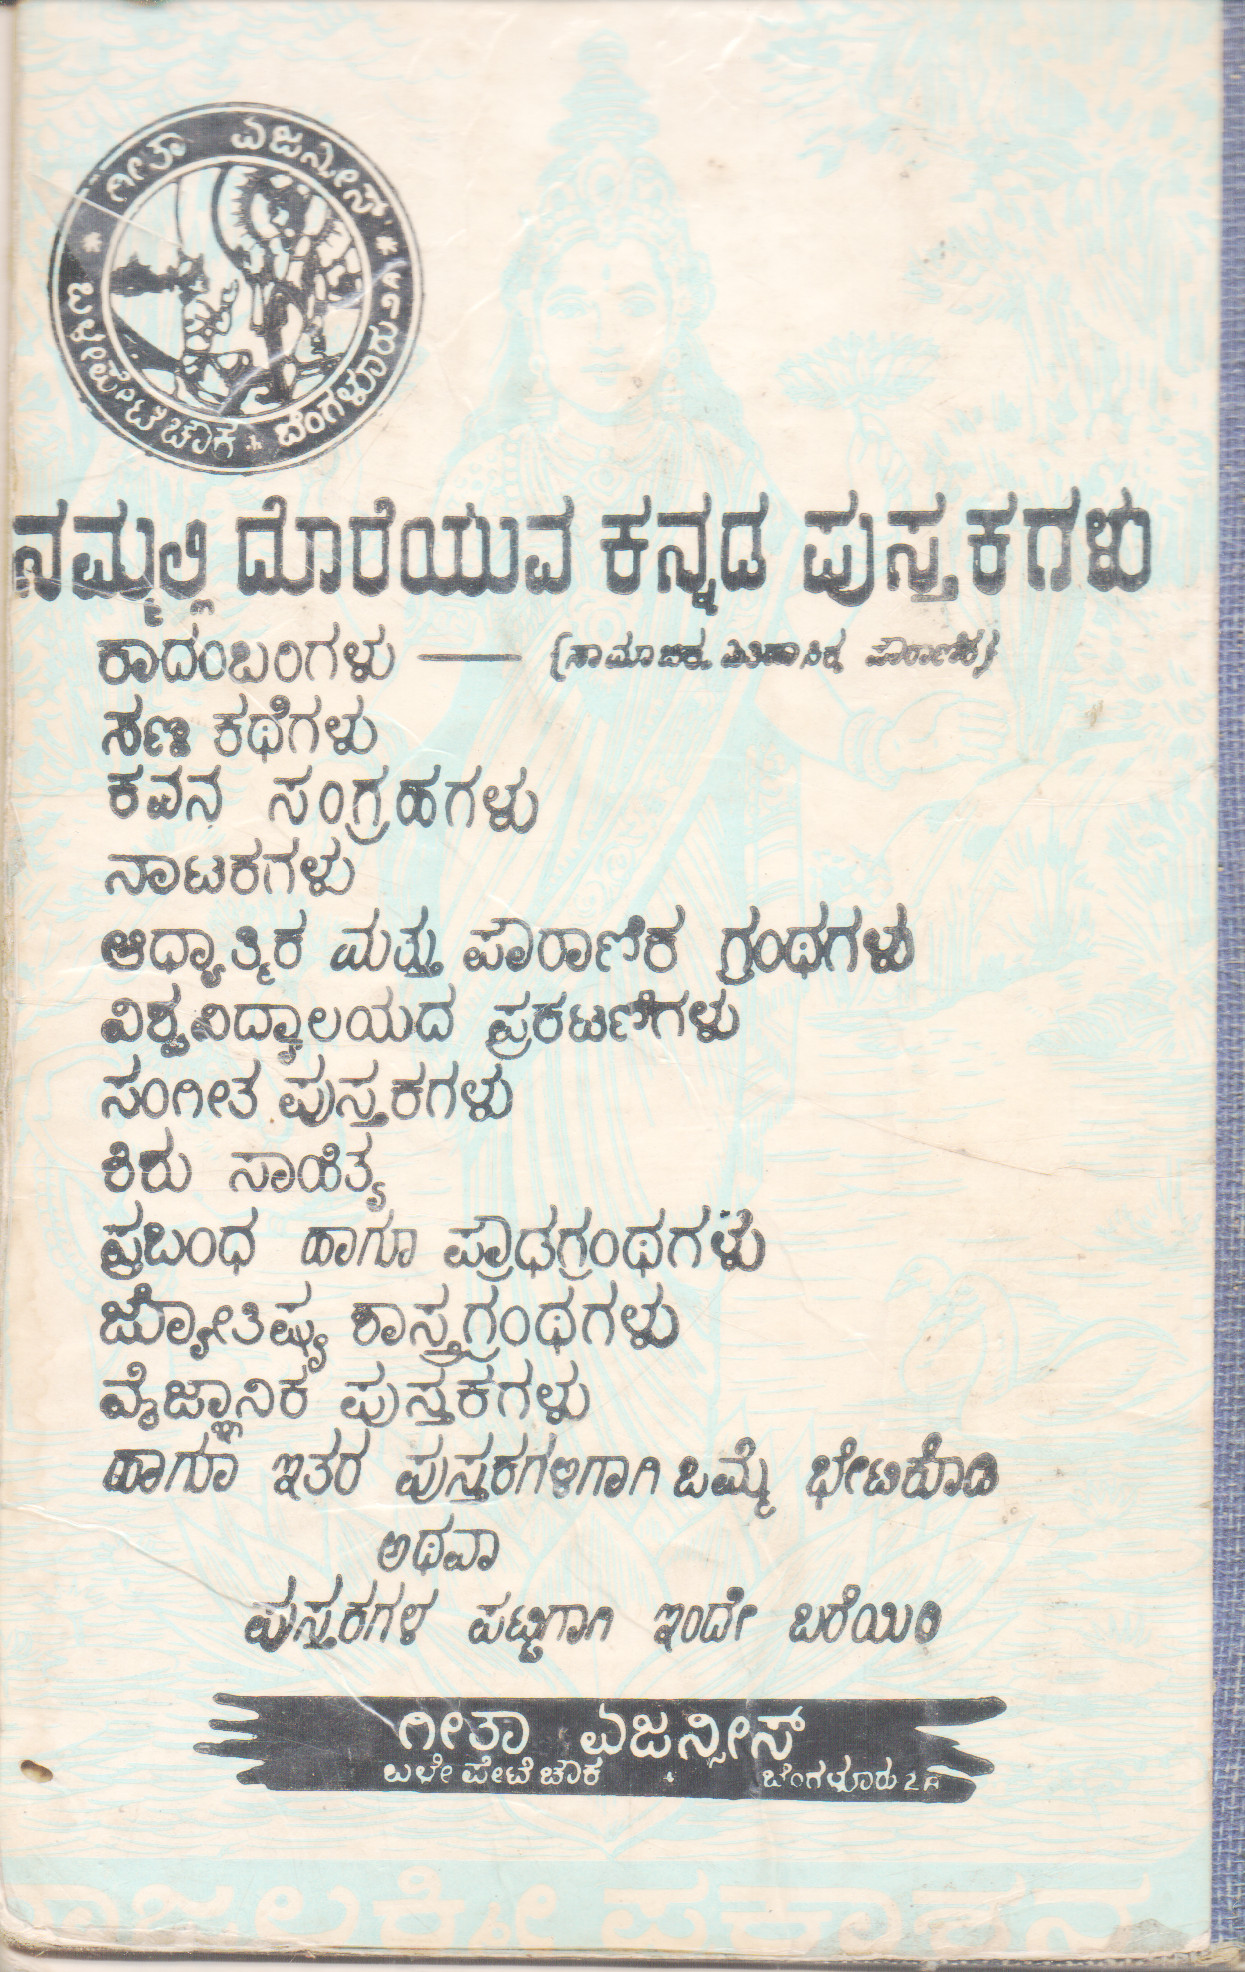 ಗೀತಾ ಏಜನ್ಸೀಸ್
ಬಳೇಪೇಟೆ ಚೌಕ ಬೆಂಗಳೂರು
ನಮ್ಮಲ್ಲಿ ದೊರೆಯುವ ಕನ್ನಡ ಪುಸ್ತಕಗಳು
ಕಾದಂಬರಿಗಳು — (ಸಾಮಾಜಿಕ, ಐತಿಹಾಸಿಕ, ಪೌರಾಣಿಕ)
ಸಣ್ಣ ಕಥೆಗಳು
ಕವನ ಸಂಗ್ರಹಗಳು
ನಾಟಕಗಳು
ಆಧ್ಯಾತ್ಮಿಕ ಮತ್ತು ಪೌರಾಣಿಕ ಗ್ರಂಥಗಳು
ವಿಶ್ವವಿದ್ಯಾಲಯದ ಪ್ರಕಟಣೆಗಳು
ಸಂಗೀತ ಪುಸ್ತಕಗಳು
ಶಿಶು ಸಾಹಿತ್ಯ
ಪ್ರಬಂಧ ಹಾಗೂ ಪ್ರೌಢಗ್ರಂಥಗಳು
ಜ್ಯೋತಿಷ್ಯ ಶಾಸ್ತ್ರಗ್ರಂಥಗಳು
ವೈಜ್ಞಾನಿಕ ಪುಸ್ತಕಗಳು
ಹಾಗೂ ಇತರ ಪುಸ್ತಕಗಳಿಗಾಗಿ ಒಮ್ಮೆ ಭೇಟಿಕೊಡಿ
ಅಥವಾ
ಪುಸ್ತಕಗಳ ಪಟ್ಟಿಗಾಗಿ ಇಂದೇ ಬರೆಯಿರಿ
ಗೀತಾ ಏಜನ್ಸೀಸ್
ಬಳೇಪೇಟೆ ಚೌಕ ಬೆಂಗಳೂರು
ರಾಜಲಕ್ಷ್ಮೀ ಪ್ರಕಾಶನ